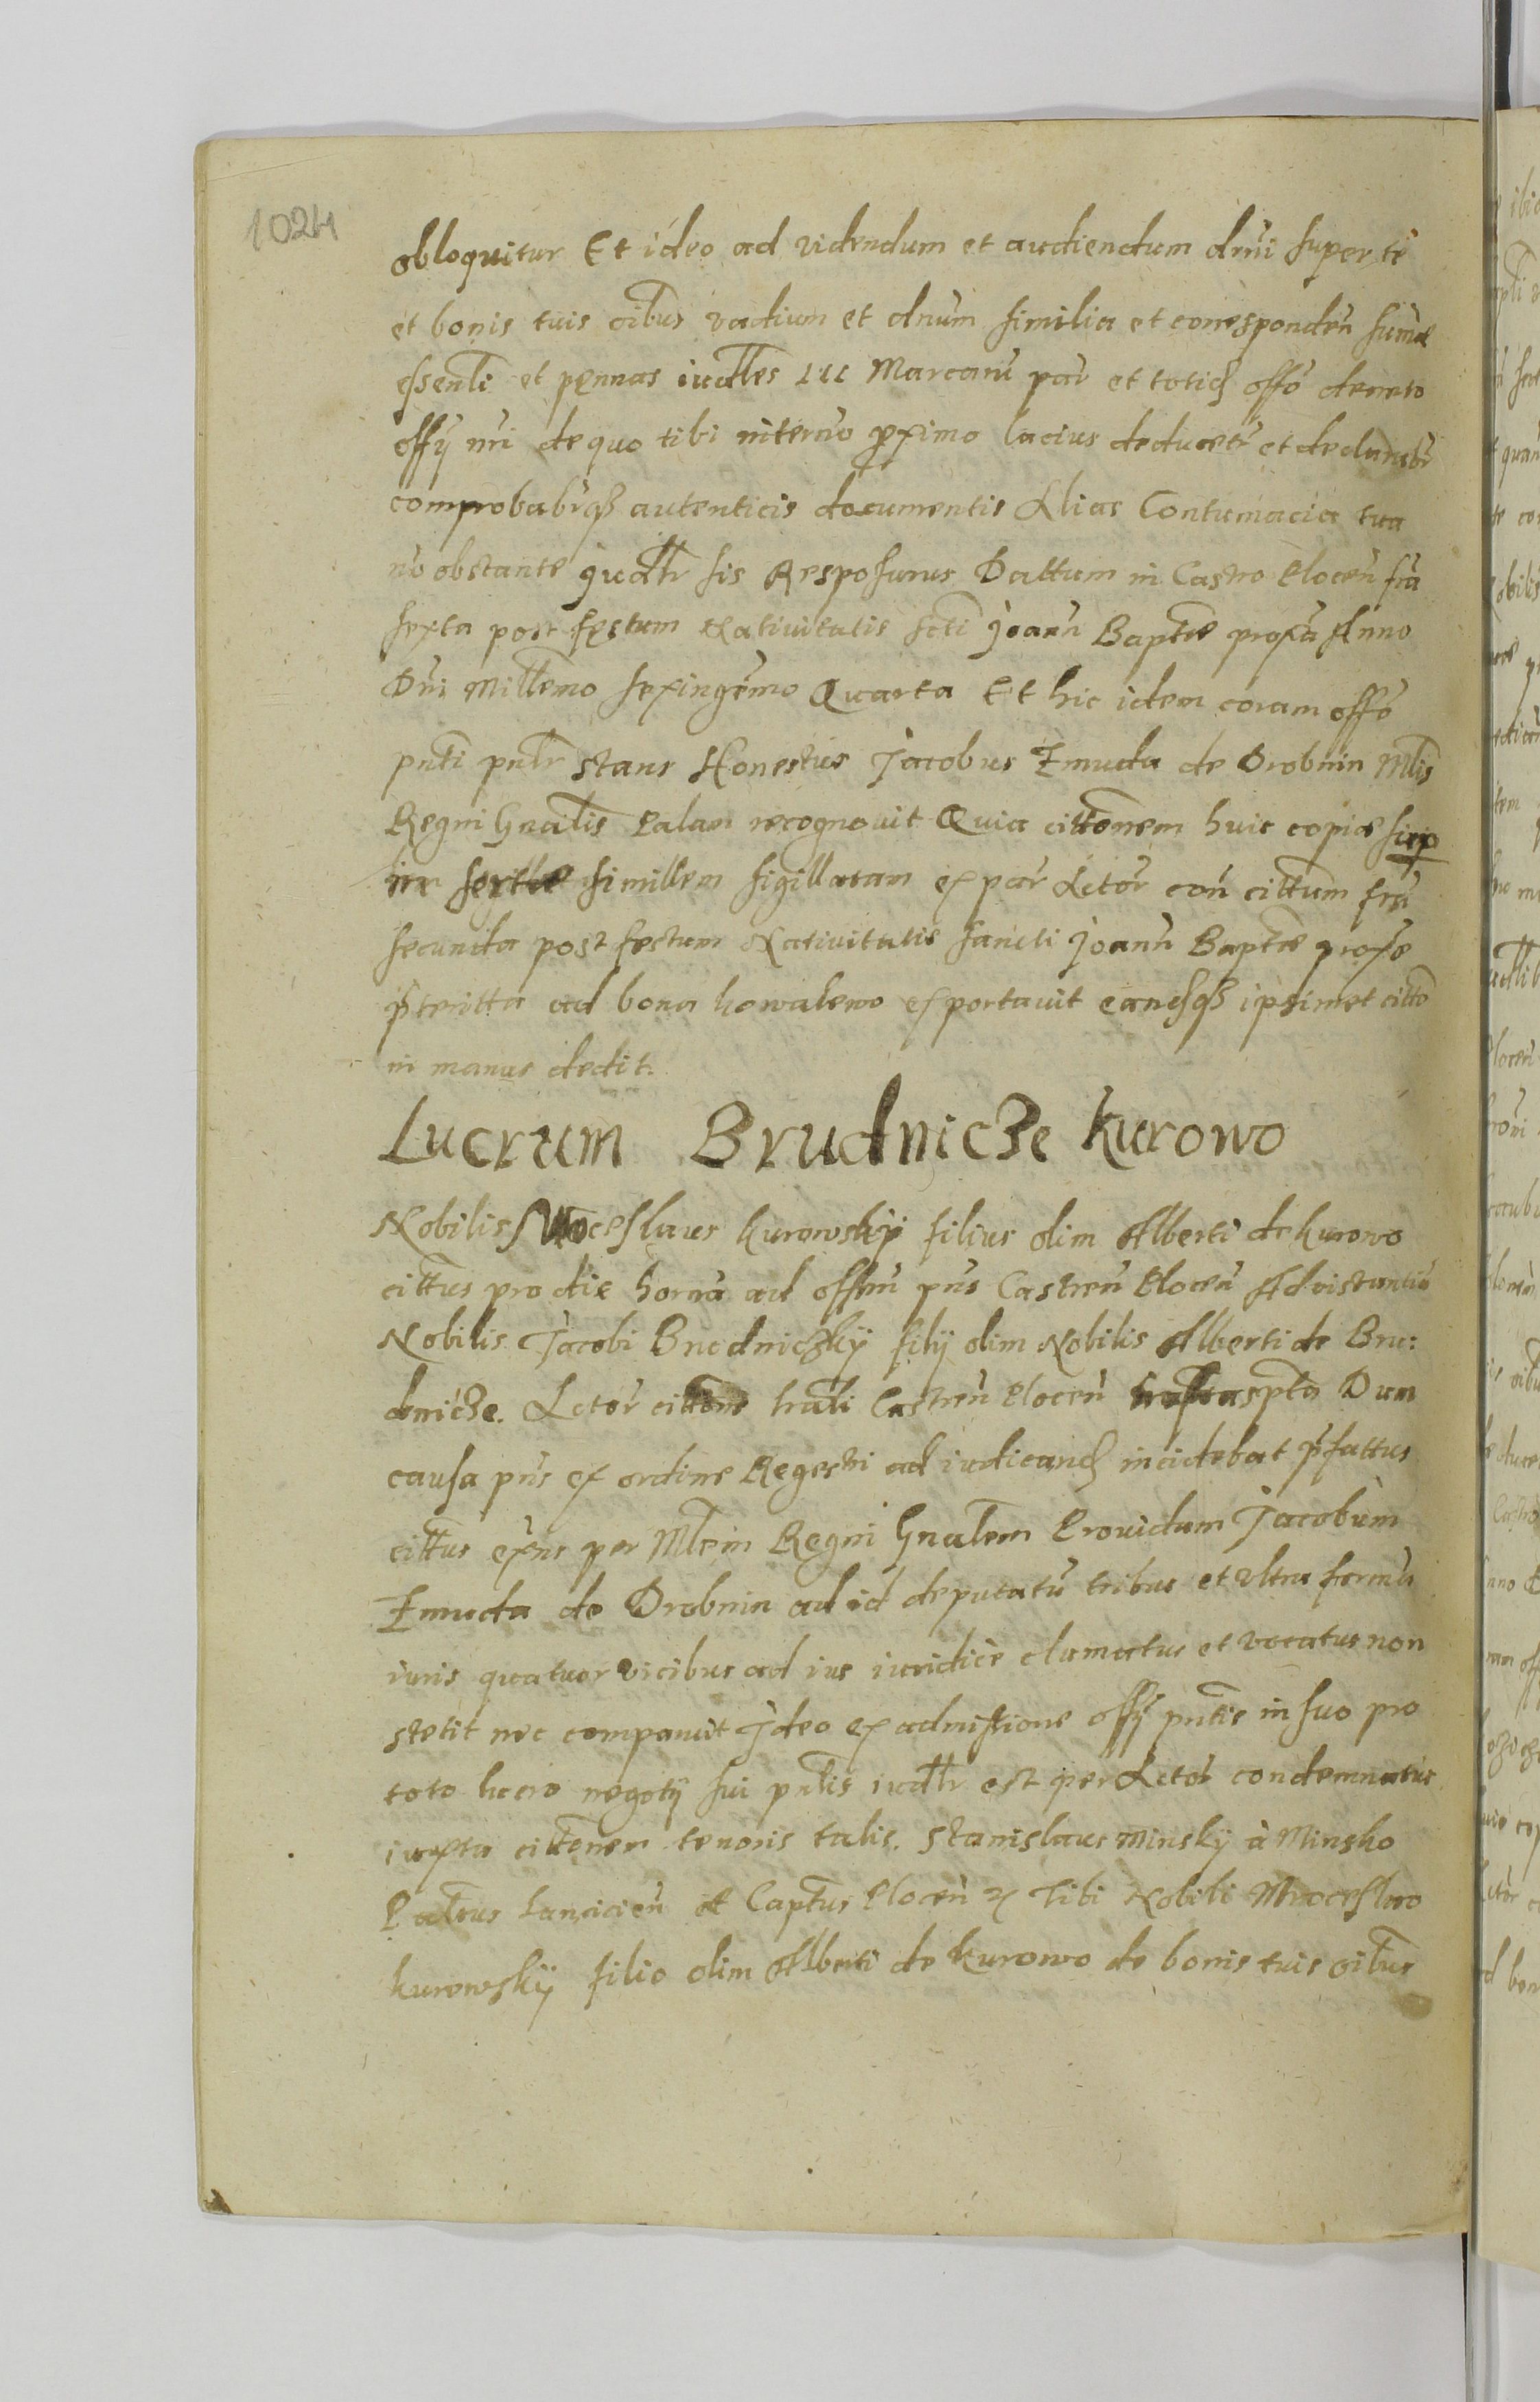 1024
obloquitur Et ideo ad videndum et audiendum dnni super te
et bonis tuis oibus vadium et dnnum similia et corresponden sumæ
essentli et pennas iudlles Marcaru par et totid offo decreto
offÿ nri de quo tibi in termino proximo lacius deducetr et declarabr
comprobabrqз autenticis documentis Alias Contumacia tua
no obstante judlr sis Resposurus Dattum in Castro Plocen fria
sexta post festum Natiuitatis scti Joann Baptæ proxa Anno
Dni Millemo sexingemo Quarta Et hic idem coram offo
pnti pnlr stans Honestus Jacobus Zmuda de Drobnin Mlis
Regni Gnalis Palam recognouit Quia cittonem huic copiæ superin
sertæ simillem sigillatam ex par Actor con cittum fria
secunda post festum Natiuitatis sancti Joann Baptæ proxe
pteritta ad bona kowalewo exportauit eandqз ipsimet citto
in manus dedit.
Lucrum Brudnicze Kurowo
Nobilis Mroceslaus Kurowskÿ filius olim Alberti de Kurowo
cittus pro die horna ad offm pns Castren Plocen Ad instantia
Nobilis Jacobi Brudniczkÿ filÿ olim Nobilis Alberti de Bru:
dnicze. Actor cittone Castren Plocen Dum
causa pns ex ordine Regestri ad iudicand incidebat pfattus
cittus exns per Mlem Regni Gnalem Prouidum Jacobum
Zmuda de Drobnin ad id deputatu tribus et vltra formā
iuris quatuor vicibus ad ius iuridice clamatus et vocatus non
stetit nec comparuit Jdeo ex admissione offÿ pntis in suo pro
toto lucro negotÿ sui pnlis iudlr est per Actor condemnatus
iuxta cittonem tenoris talis. Stanislaus Minskÿ à Minsko
Palnus Lancicien et Captus Plocen Tibi Nobili Mroceslao
Kurowskÿ filio olim Alberti de Kurowo de bonis tuis oibus